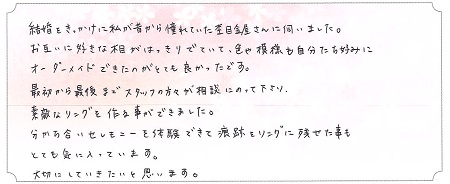 結婚をきっかけに私が昔から憧れていた杢目金屋さんに伺いました。
お互いに好きな相がはっきりでていて、色や模様も自分たち好みに
オーダーメイドできたのがとても良かったです。
最初から最後までスタッフの方々が相談にのって下さり、
素敵なリングを作る事ができました。
分かち合いセレモニーを体験できて痕跡をリングに残せた事も
とても気に入っています。
大切にしていきたいと思います。